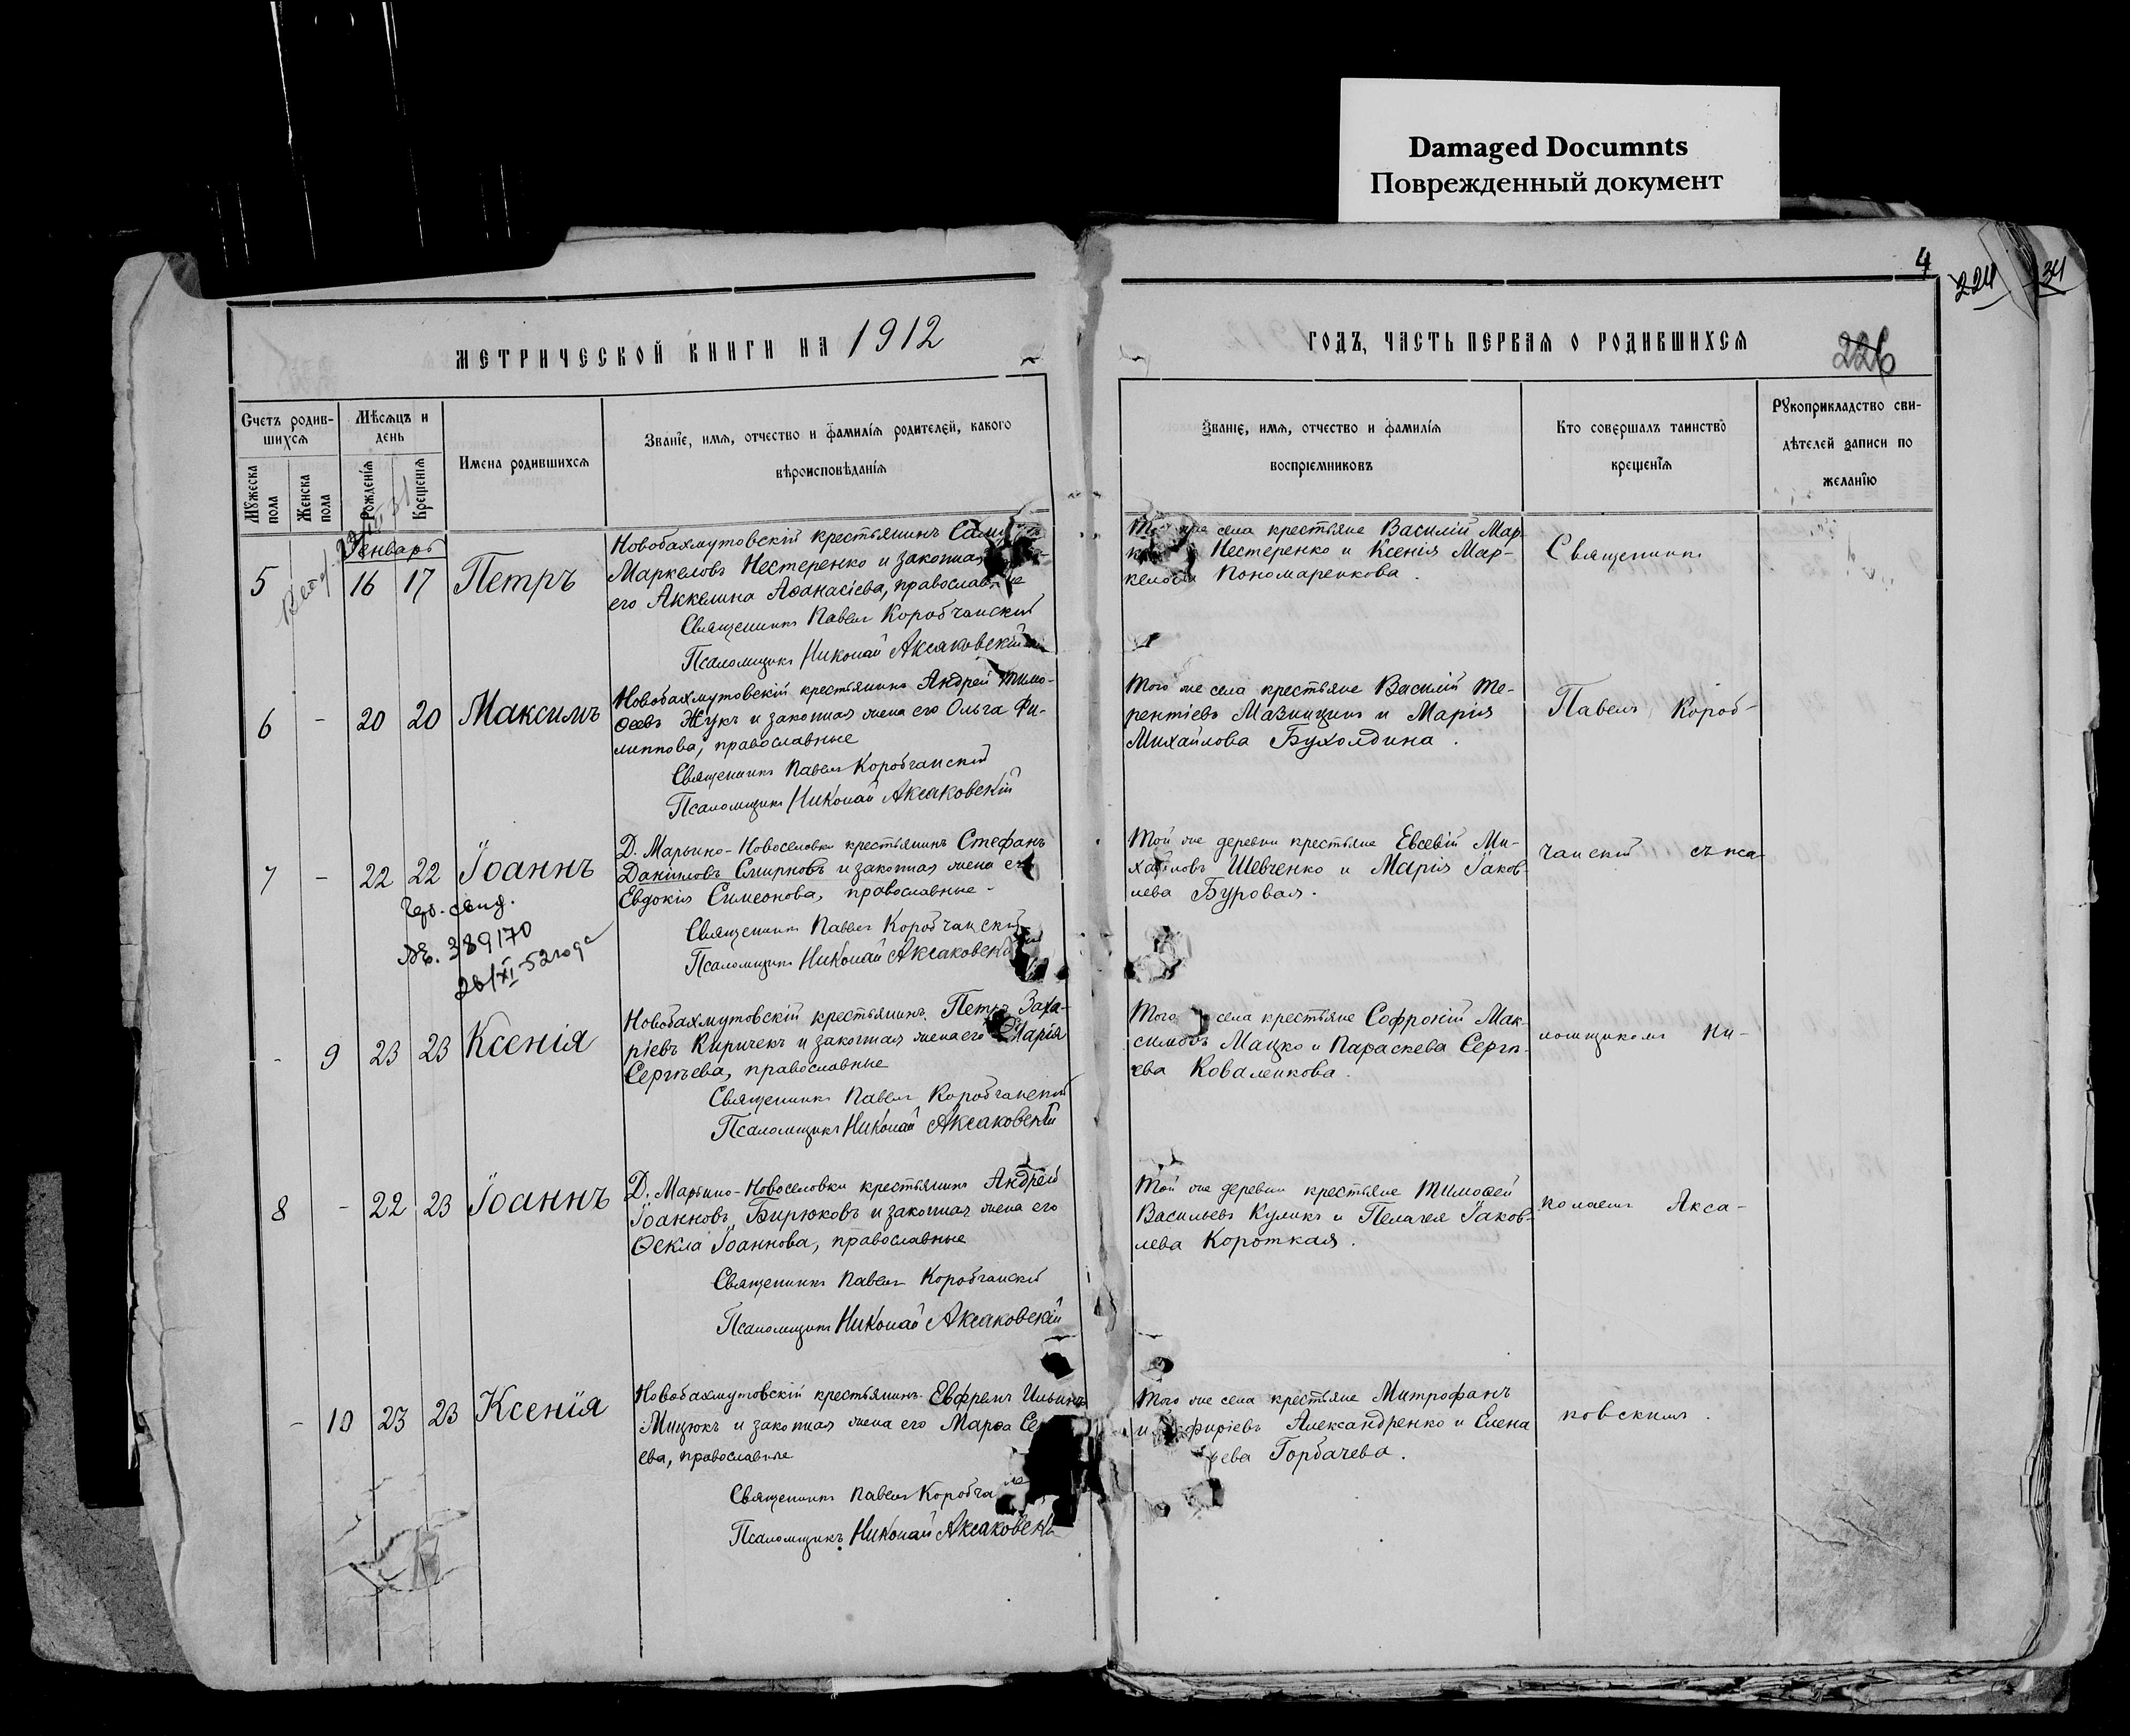 Damaged Documnts
Поврежденный документ
4
224
34
МЕТРИЧЕСКОЙ КНИГИ НА 1912
ГОДЪ, ЧАСТЬ ПЕРВАЯ О РОДИВШИХСЯ
226
Счетъ родив-
шихся
Мужеска пола
Женска пола
Мѣсяцъ и
день
Рожденія
Крещенія
Имена родившихся
Званіе, имя, отчество и фамилія родителей, какого
вѣроисповѣданія
Званіе, имя, отчество и фамилія
воспріемниковъ
Кто совершалъ таинство
крещенія
Рукоприкладство сви-
дѣтелей записи по
желанію
Январь
5 16 17 Петръ
Новобахмутовскій крестьянинъ
Маркеловъ Нестеренко и законная
его Акилина Аѳанасіева, православные
Священникъ Павелъ Коробчанскій
Псаломщикъ Николай Аксаковскій
же села крестьяне Василій Мар-
Нестеренко и Ксенія Мар-
келова Пономаренкова.
Священникъ
6 - 20 20 Максимъ
Новобахмутовскій крестьянинъ Андрей Тимо-
ѳеевъ Жукъ и законная жена его Ольга Фи-
липпова, православные
Священникъ Павелъ Коробчанскій
Псаломщикъ Николай Аксаковскій
Того же села крестьяне Василій Те-
рентіевъ Мазницинъ и Марія
Михайлова Бухолдина.
Павелъ Короб-
7 - 22 22 Іоаннъ
свид.
№. 389170
26/XI-52 года
Д. Марьино-Новоселовки крестьянинъ Стефанъ
Даніиловъ Смирновъ и законная жена его
Евдокія Симеонова, православные -
Священникъ Павелъ Коробчанскій
Псаломщикъ Николай Аксаковскій
Той же деревни крестьяне Евсевій Ми-
хайловъ Шевченко и Марія Іаков-
лева Буровая.
чанскій съ пса-
- 9 23 23 Ксенія
Новобахмутовскій крестьянинъ Петръ Заха-
ріевъ Киричекъ и законная жена его Марія
Сергѣева, православные
Священникъ Павелъ Коробчанскій
Псаломщикъ Николай Аксаковскій
Того села крестьяне Софроній Мак-
симовъ Мацко и Параскева Сергѣ-
ева Коваленкова.
ломщикомъ Ни-
8 - 22 23 Іоаннъ
Д. Марьино-Новоселовки крестьянинъ Андрей
Іоанновъ Бирюковъ и законная жена его
Ѳекла Іоаннова, православные
Священникъ Павелъ Коробчанскій
Псаломщикъ Николай Аксаковскій
Той же деревни крестьяне Тимоѳей
Васильевъ Куликъ и Пелагея Іаков-
лева Короткая.
колаемъ Акса-
- 10 23 23 Ксенія
Новобахмутовскій крестьянинъ Евфремъ Ильинъ
Мицюкъ и законная жена его Марѳа
ева, православные
Священникъ Павелъ
Псаломщикъ Николай Аксаковскій
Того же села крестьяне Митрофанъ
Александренко и Елена
Горбачева.
ковскимъ.